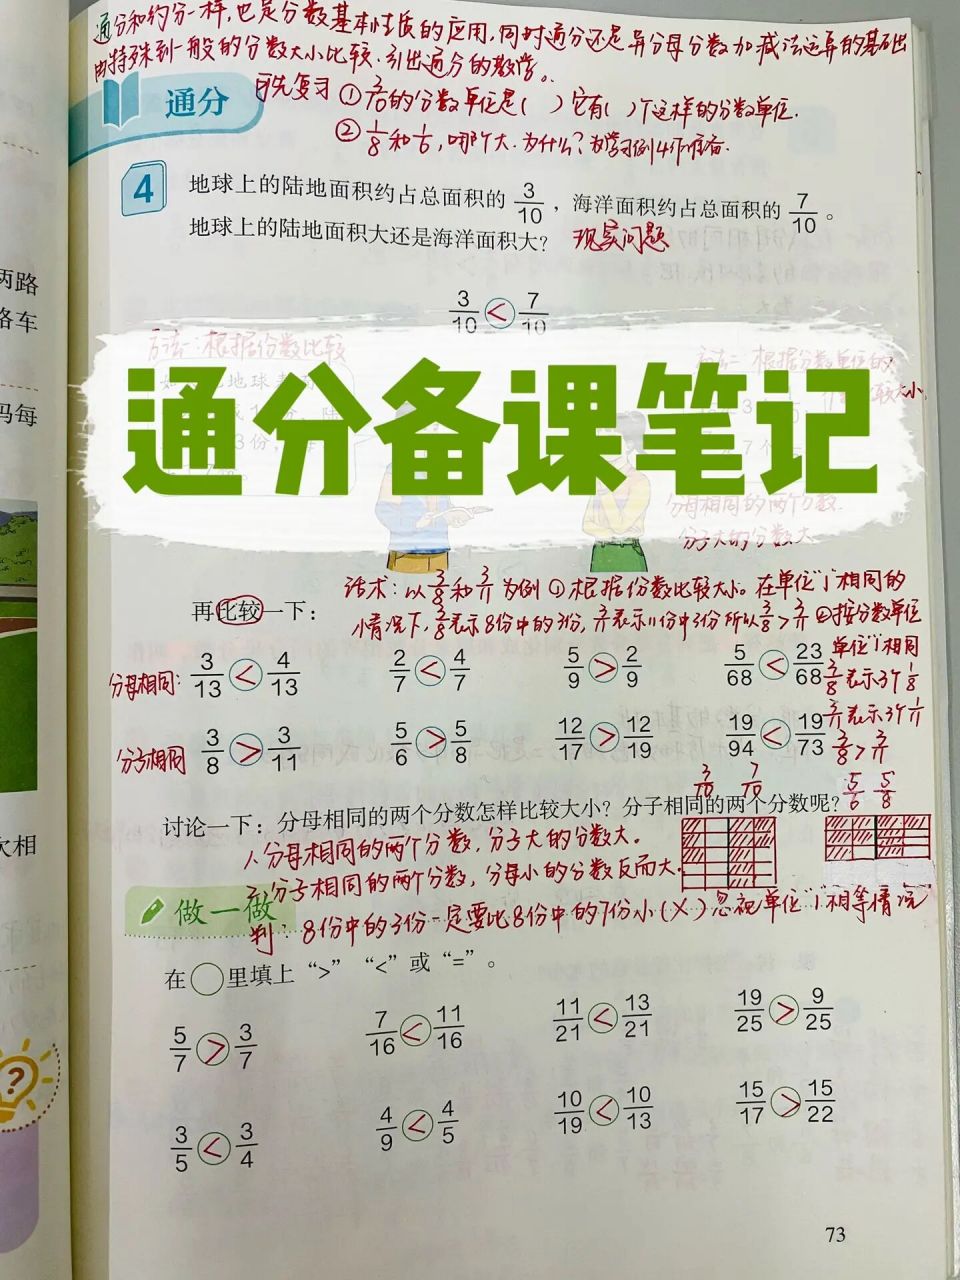 通分和约分一样,也是分数基本性质的应用,同时通分还是异分母分数加减法运算的基础出
由特殊到一般的分数大小比较,引出通分的教学。
通分
可先复习 ①7/10的分数单位是( )它有( )个这样的分数单位.
②1/8和1/6,哪个大.为什么?为学习例4作准备.
4
地球上的陆地面积约占总面积的3/10,海洋面积约占总面积的7/10。
地球上的陆地面积大还是海洋面积大? 现实问题
3/10 < 7/10
方法一:根据份数比较
方法二:根据分数单位的
较大小
通分备课笔记
分母相同的两个分数.
分子大的分数大
话术:以3/8和3/11为例 ①根据份数比较大小。在单位"1"相同的
情况下,3/8表示8份中的3份,3/11表示11份中3份所以3/8>3/11 ②按分数单位
再比较一下:
单位"1"相同
分母相同: 3/13 < 4/13 2/7 < 4/7 5/9 > 2/9 5/68 < 23/68
3/8表示3个1/8
3/11表示3个1/11
分子相同 3/8 > 3/11 5/6 > 5/8 12/17 > 12/19 19/94 < 19/73
3/8>3/11
3/10 7/10 5/6 5/8
讨论一下:分母相同的两个分数怎样比较大小?分子相同的两个分数呢?
1.分母相同的两个分数,分子大的分数大。
2.分子相同的两个分数,分母小的分数反而大.
做一做
判:8份中的3份一定要比8份中的7份小(×)忽视单位"1"相等情况
在○里填上“>”“<”或“=”。
5/7 > 3/7 7/16 < 11/16 11/21 < 13/21 19/25 > 9/25
3/5 < 3/4 4/9 < 4/5 10/19 < 10/13 15/17 > 15/22
73
两路
各车
吗每
欠相